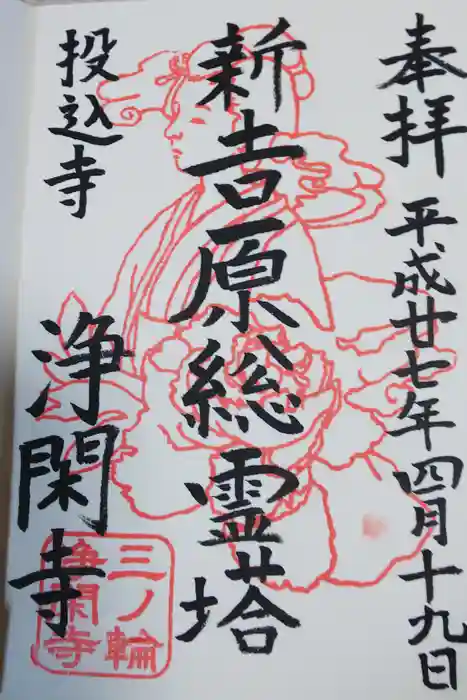 奉拝
平成廿七年四月十九日
新吉原総霊塔
投込寺
浄閑寺
三ノ輪
浄閑寺